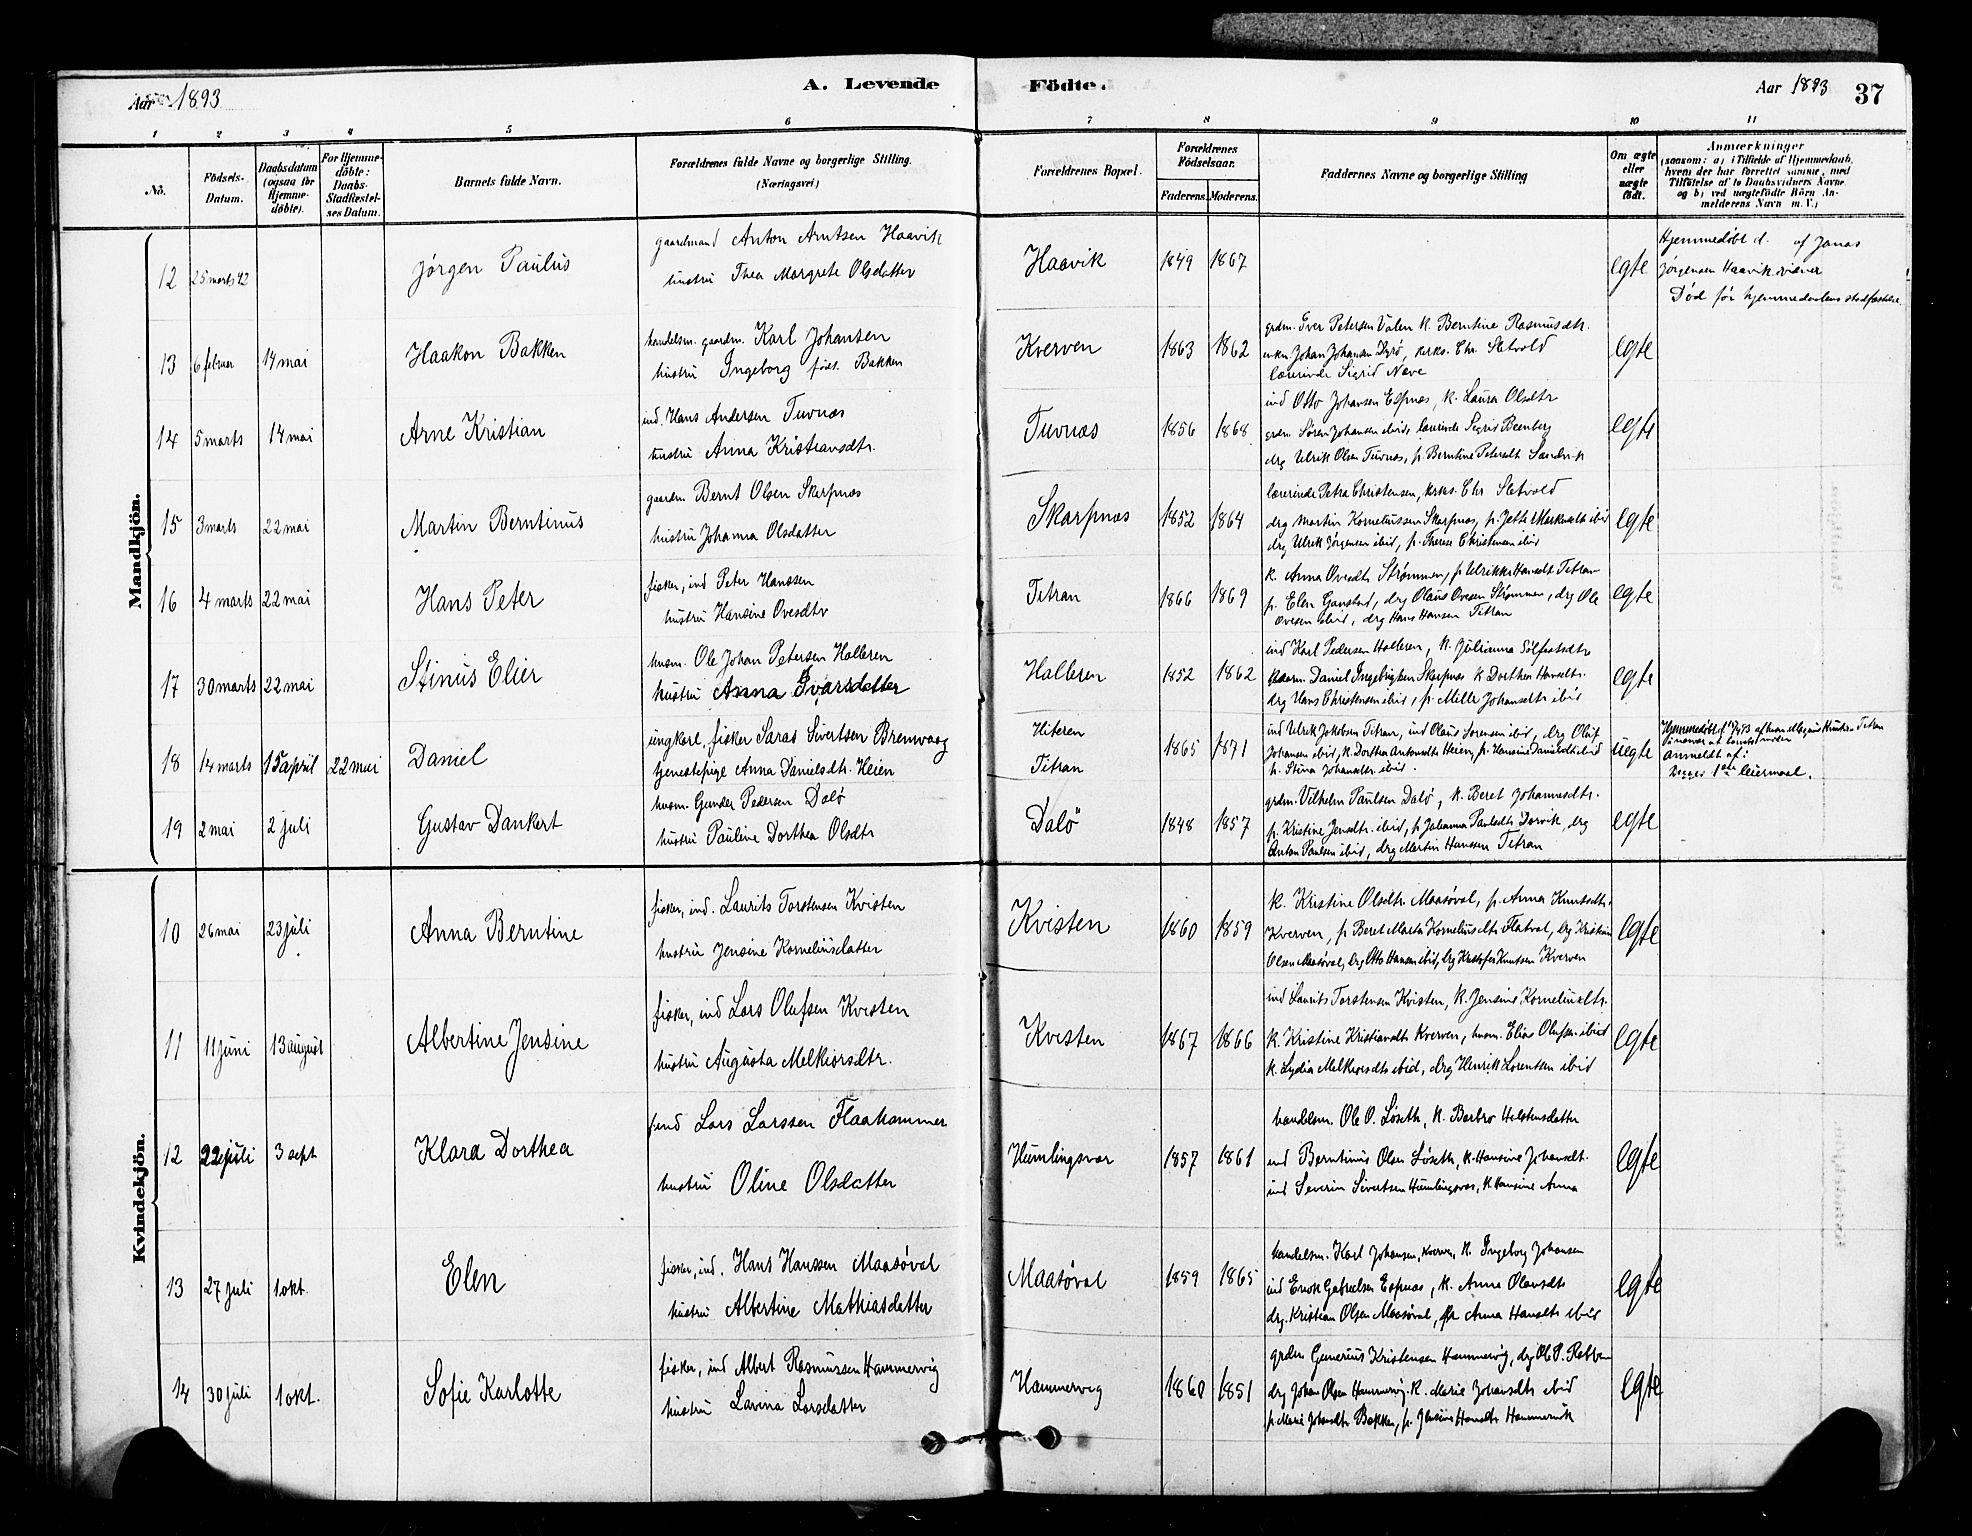 Aar 1893
A. Levende
Födte.
Aar 1893
37
1 2 3 4 5 6 7 8 9 10 11
No.
Födsels-Datum.
Daabsdatum (ogsaa for Hjemme-döbte).
For Hjemme-döbte: Daabs-Stadfæstel-ses Datum.
Barnets fulde Navn.
Forældrenes fulde Navne og borgerlige Stilling. (Næringsvei)
Forældrenes Bopæl.
Forældrenes Födselsaar.
Faderens. Moderens.
Faddernes Navne og borgerlige Stilling
Om ægte eller uægte födt.
Anmærkninger
(saasom: a) i Tilfælde af Hjemmedaab, hvem der har forrettet samme, med Tilföielse af to Daabsvidners Navne og b) ved uægtefödte Börn An-melderens Navn m. V.)
Mandkjön.
12 25 marts 92 Jørgen Paulus
gaardmand Anton Arntsen Haavik
hustru Thea Margrete Olsdatter
Haavik 1849 1867 egte
Hjemmedøbt d. af Jonas
Jørgensen Haavik
Død før hjemmedaabens stadfæstelse
13 6 februar 14 mai Haakon Bakken
handelsm. gaardm. Karl Johansen
hustru Ingeborg født Bakken
Kverven 1863 1862
grdm. Iver Petersen Valen k. Berntine Rasmusdtr.
Johan Johansen Dyrø, kirks. Chr. Sletvold
lærerinde Sigrid Neve
egte
14 5 marts 14 mai Arne Kristian
ind. Hans Andersen Tuvnæs
hustru Anna Kristiansdtr.
Tuvnæs 1856 1868
ind Otto Johansen Espnæs, k. Laura Olsdtr
grdm Søren Johansen ibid, lærerinde Sigrid
drg Ulrik Olsen Tuvnæs, p. Berntine Petersdt
egte
15 3 marts 22 mai Martin Berntinus
gaardm. Bernt Olsen Skarpnæs
hustru Johanna Olsdatter
Skarpnæs 1852 1864
lærerinde Petra Christensen, kirks. Chr Sletvold
drg Martin Korneliussen Skarpnæs, p. Jette Markusdt ibid
drg Ulrik Jørgensen ibid, p. Therese Christensen ibid
egte
16 4 marts 22 mai Hans Peter
fisker, ind Peter Hanssen
hustru Hansine Ovesdtr
Titran 1866 1869
k. Anna Ovesdtr Strømmen, p Ulrikke Hansdt Titran
p. Elen, drg Olaus Ovesen Strømmen, drg Ole
Ovesen ibid, drg Hans Hansen Titran
egte
17 30 marts 22 mai Stinus Elier
husm. Ole Johan Petersen Halleren
hustru Anna Ivarsdatter
Halleren 1852 1862
ind Karl Pedersen Halleren, k. Julianna Sølfastsdtr
Daniel Ingebrigtsen Skarpnæs k Dorthea Hansdtr.
drg Hans Christensen ibid, p. Mille Johansdtr ibid
egte
18 14 marts 15 april 22 mai Daniel
ungkarl, fisker Saras Sivertsen Bremvaag
tjenestepige Anna Danielsdtr. Heien
Hiteren
Titran
1865 1871
ind Ulrik Jakobsen Titran, ind Olaus Sørensen ibid, drg Oluf
Johansen ibid, k. Dorthea Antonsdtr Heien, p. Hansine Danielsdt ibid
p. Stina Johansdtr. ibid.
uegte
Anmeldt af:
Begges 1ste leiermaal.
19 2 mai 2 juli Gustav Dankert
husm. Gunder Pedersen Dalø
hustru Pauline Dorthea Olsdtr
Dalø 1848 1857
grdm. Vilhelm Paulsen Dalø, k. Beret Johannesdtr.
p. Kristine Jensdtr. ibid, p Johanna Paulsdtr, drg
Anton Paulsen ibid, drg Martin Hanssen Titran
egte
Kvindekjön.
10 26 mai 23 juli Anna Berntine
fisker, ind. Laurits Torstensen Kvisten
hustru Jensine Korneliusdatter
Kvisten 1860 1859
k. Kristine Olsdtr. Maasøval, p. Anna Knutsdtr.
Kverven, p Beret Marta Korneliusdtr Flatval, drg Kristian
Olsen Maasøval, drg Otto Hansen ibid, drg Kristofer Knutsen Kverven
egte
11 11 juni 13 august Albertine Jensine
fisker, ind Lars Olufsen Kvisten
hustru Augusta Melkiorsdtr.
Kvisten 1867 1866
ind Laurits Torstensen Kvisten, k. Jensine Korneliusdtr.
k. Kristine Kristiansdt Kverven, husm. Elias Olufsen ibid
k. Lydia Melkiorsdt ibid, drg Henrik Lorentsen ibid
egte
12 22 juli 3 sept Klara Dorthea
ind Lars Larssen Flaahammer
hustru Oline Olsdatter
Humlingsvær 1857 1861
handelsm. Ole O. Løseth, k. Barbro Holstensdatter
ind Berntinus Olsen Løseth, k. Hansine Johansdt.
ind Severin Sivertsen Humlingsvær, k. Hansine Anna
egte
13 27 juli 1 okt. Elen
fisker, ind. Hans Hanssen Maasøval
hustru Albertine Mathiasdatter
Maasøval 1859 1865
handelsm. Karl Johansen, Kverven, k. Ingeborg Johansen
ind Enok Gabrielsen Espnæs, k. Anne Olavsdt
drg. Kristian Olsen Maasøval, p. Anna Hansdtr ibid
egte
14 30 juli 1 okt. Sofie Karlotte
fisker, ind Albert Rasmussen Hammervig
hustru Lavina Larsdatter
Hammervig 1860 1851
grdm Gunerius Kristensen Hammervig, drg Ole P.
drg Johan Olsen Hammervig. k. Marie Johansdtr ibid
p. Marie Johansdtr Bakken, p. Jensine Hansdtr Hammervik
egte